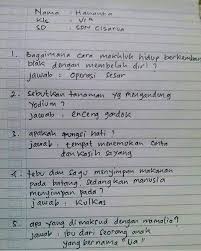 Nama : Hananta
Kls : VIa
SD : SDN Cisarua
1. Bagaimana cara makhluk hidup berkemban
biak dengan membelah diri ?
jawab : operasi sesar
2. Sebutkan tanaman yg mengandung
Yodium ?
jawab : enceng gondok
3. apakah fungsi hati ?
jawab : tempat menemukan cinta
dan kasih sayang
4. tebu dan sagu menyimpan makanan
pada batang, sedangkan manusia
menyimpan pada ?
jawab : Kulkas
5. apa yang dimaksud dengan mamalia ?
jawab : ibu dari seorang anak
yang bernama "Lia"